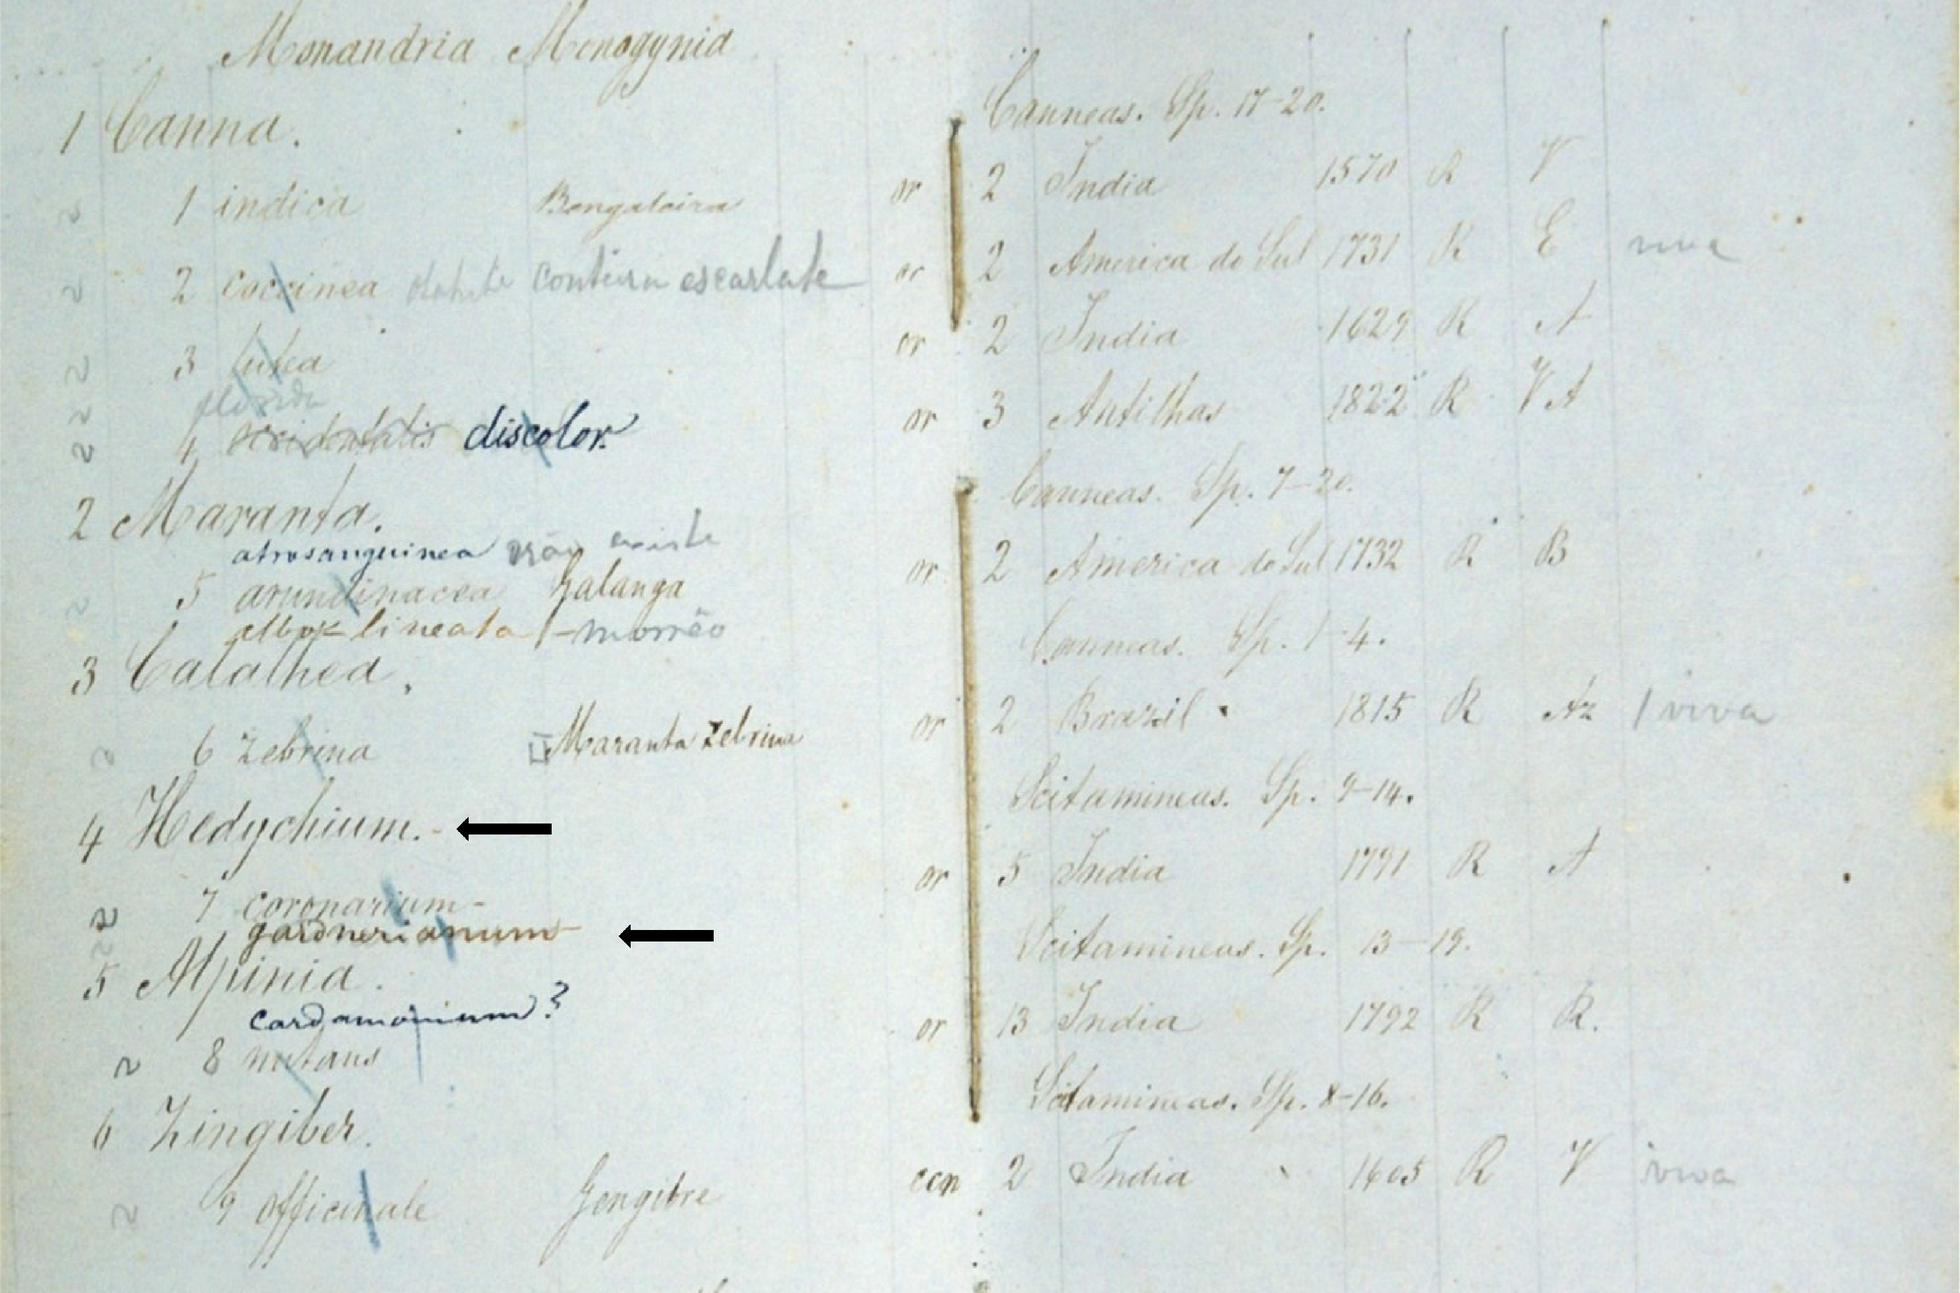 Monandria Monogynia
1 Canna. Canneas. Sp. 17-20.
1 indica or 2 India 1570 R V
2 coccinea conteira escarlate or 2 America do Sul 1731 R E viva
3 lutea or 2 India 1629 R A
florida
4 occidentalis discolor. or 3 Antilhas 1822 R VA
2 Maranta. Canneas. Sp. 7-20.
atrosanguinea não existe
5 arundinacea Galanga or 2 America do Sul 1732 R B
lineata
3 Calathea. Canneas. Sp. 1-4.
6 Zebrina Maranta Zebrina or 2 Brazil 1815 R Az 1 viva
4 Hedychium. Scitamineas. Sp. 9-14.
7 coronarium or 5 India 1791 R A
gardnerianum
5 Alpinia. Scitamineas. Sp. 13-19.
cardamomium?
8 nutans or 13 India 1792 R R.
6 Zingiber. Scitamineas. Sp. 8-16.
9 officinale Gengibre ccn 2 India 1605 R V viva